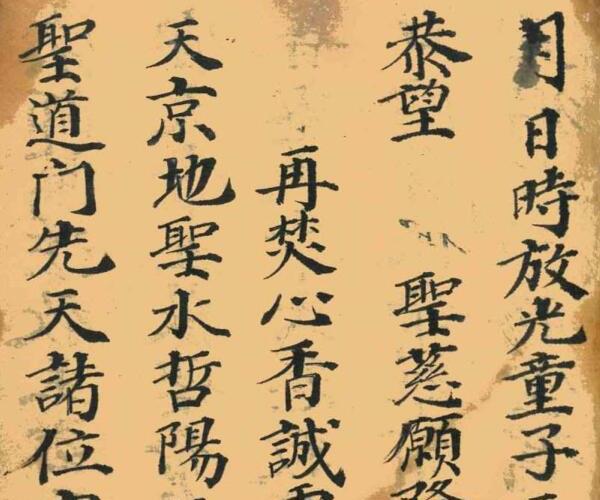 月日時放光童子
恭望 聖慈願
再焚心香誠
天京地聖水哲陽
聖道门先天諸位